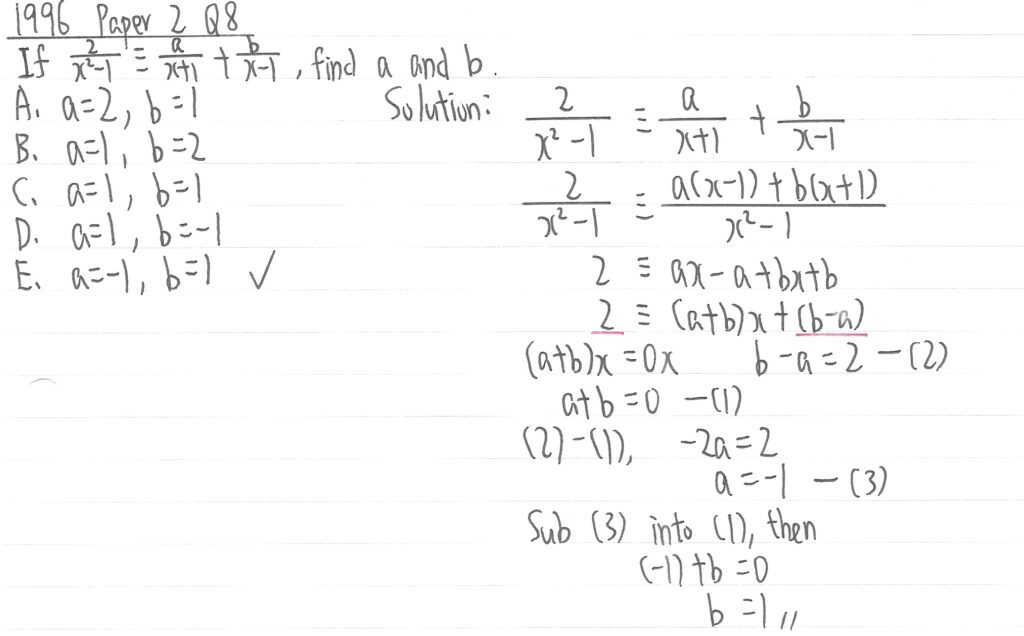 1996 Paper 2 Q8
If 2/(x²-1) ≡ a/(x+1) + b/(x-1), find a and b.
A. a=2, b=1
B. a=1, b=2
C. a=1, b=1
D. a=1, b=-1
E. a=-1, b=1 ✓
Solution: 2/(x²-1) ≡ a/(x+1) + b/(x-1)
2/(x²-1) ≡ (a(x-1)+b(x+1))/(x²-1)
2 ≡ ax-a+bx+b
2 ≡ (a+b)x+(b-a)
(a+b)x=0x b-a=2 -(2)
a+b=0 -(1)
(2)-(1), -2a=2
a=-1 -(3)
Sub (3) into (1), then
(-1)+b=0
b=1 //